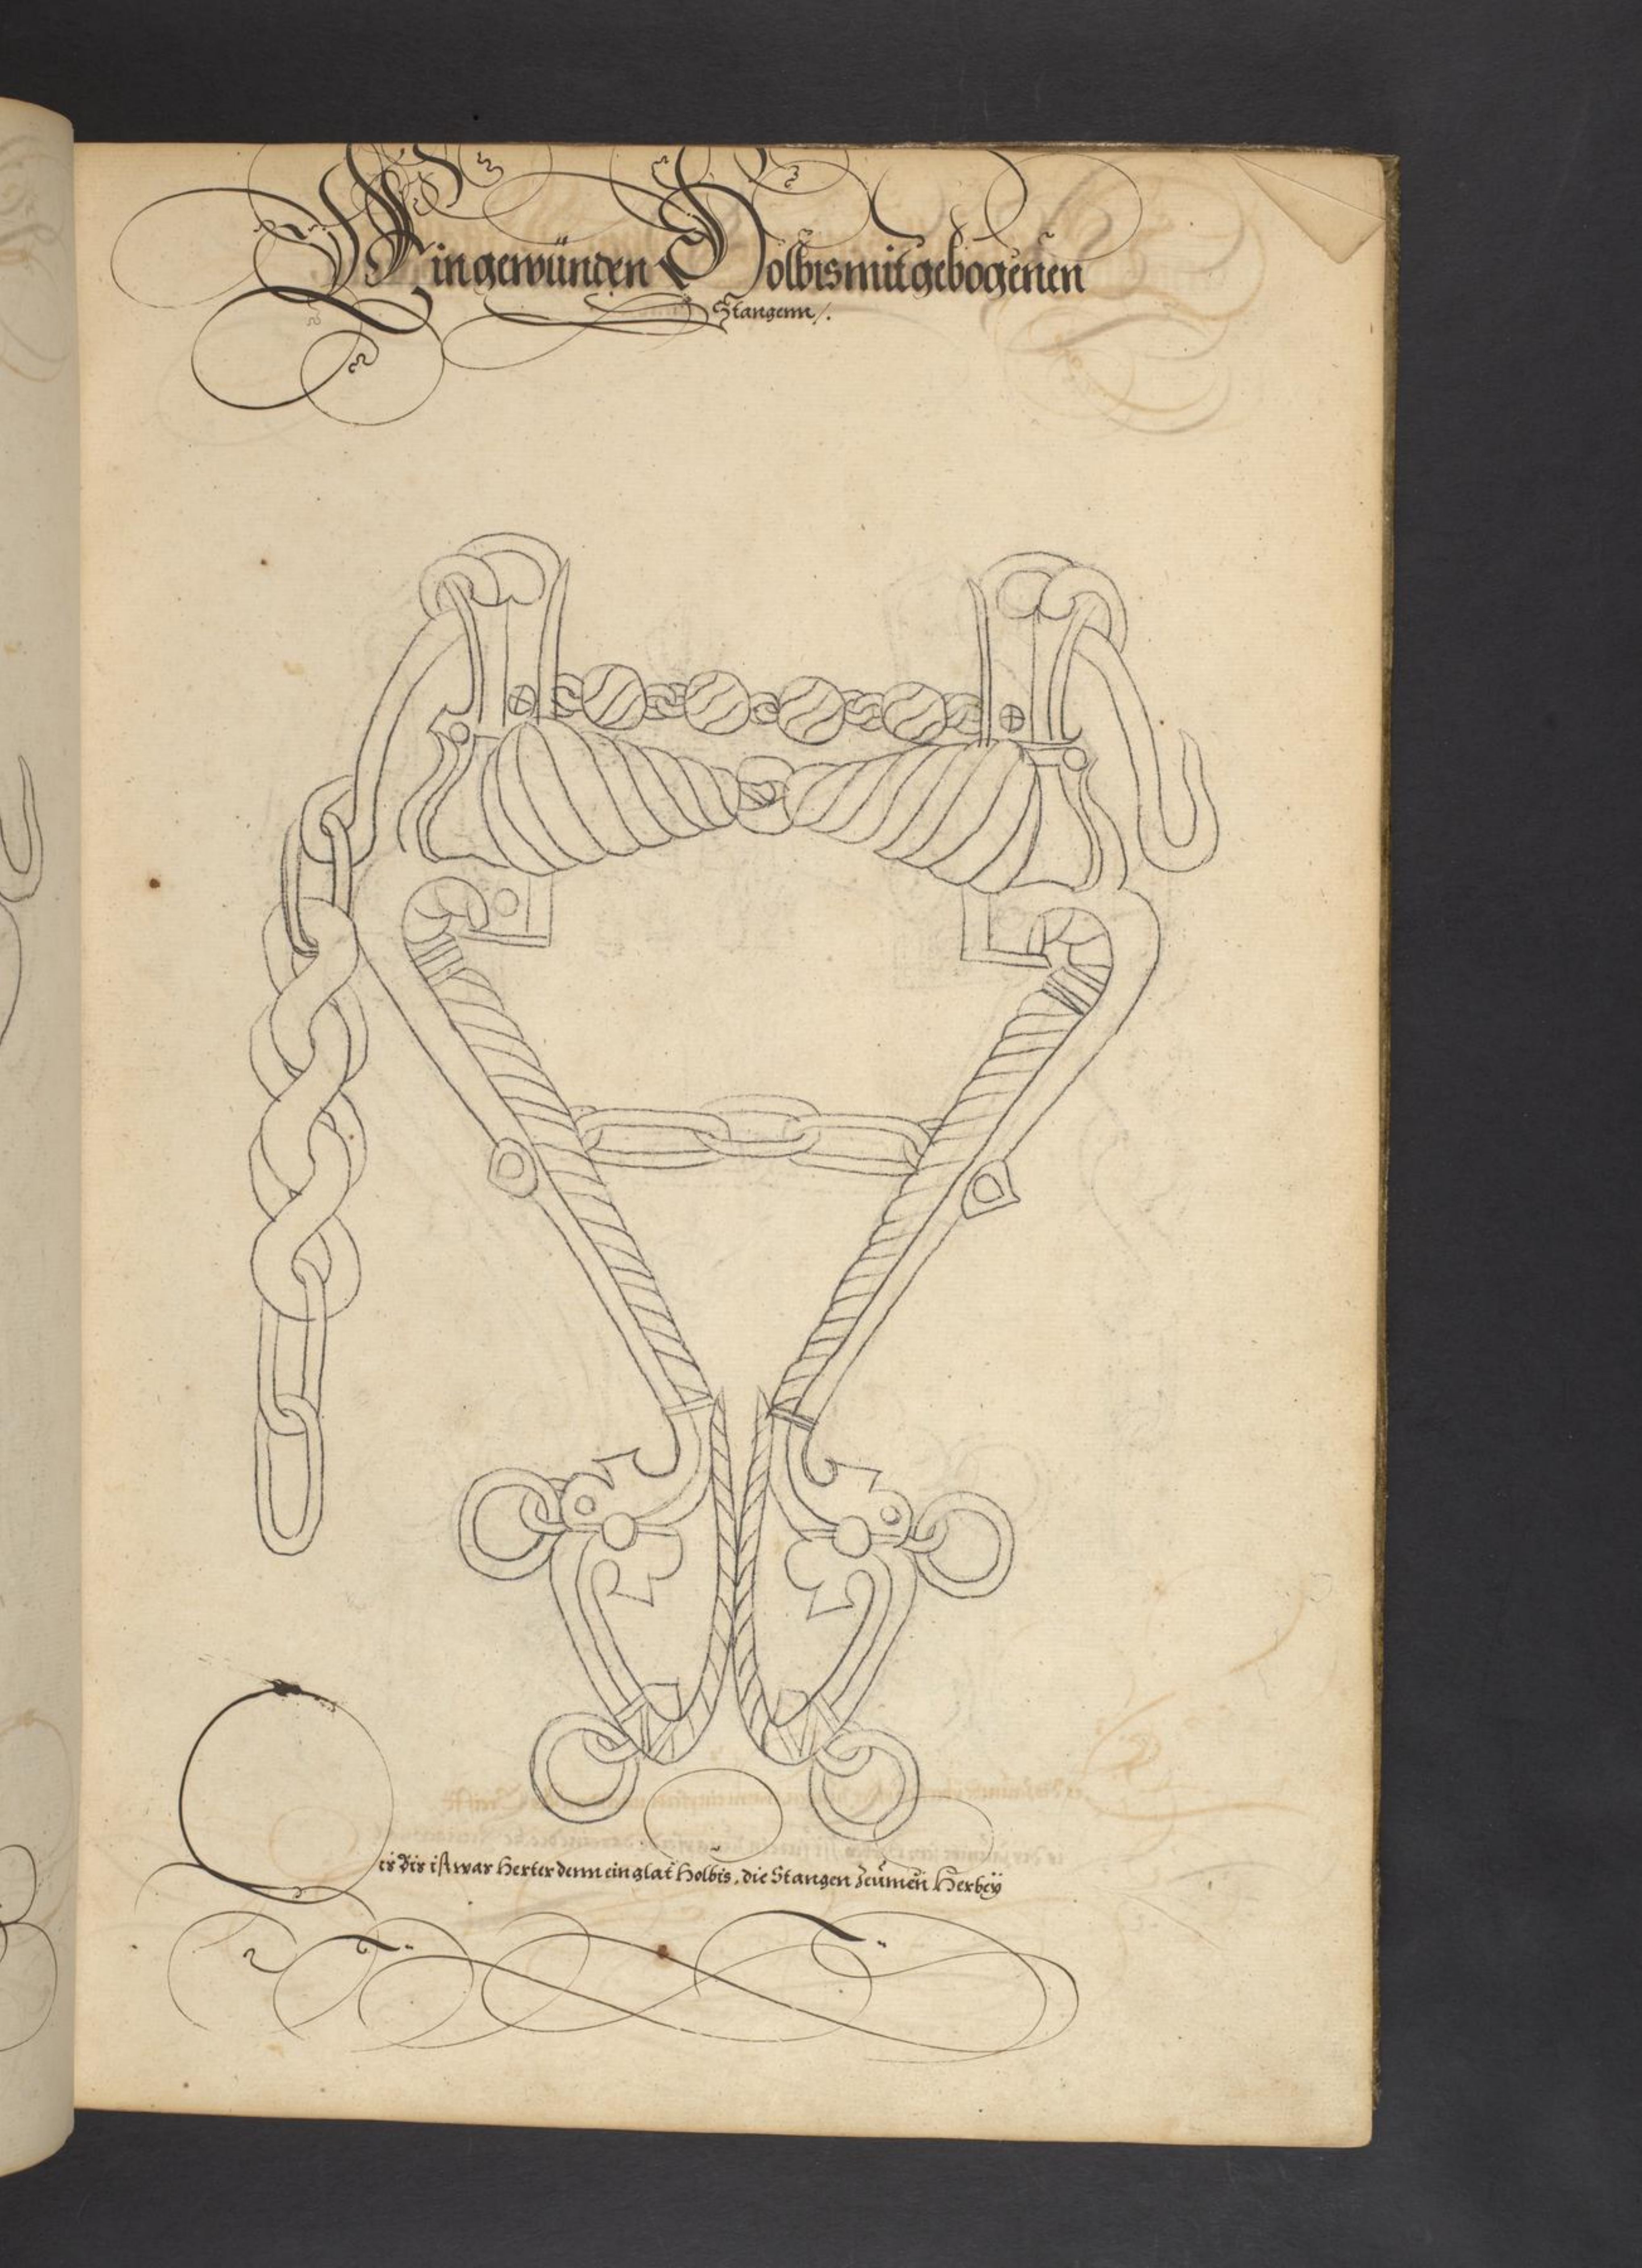 Ein gewünden Holbis mit gebogenen
Stangenn /.
Dis Bis ist war herter denn ein glat holbis, die Stangen Zeümen Herbeÿ